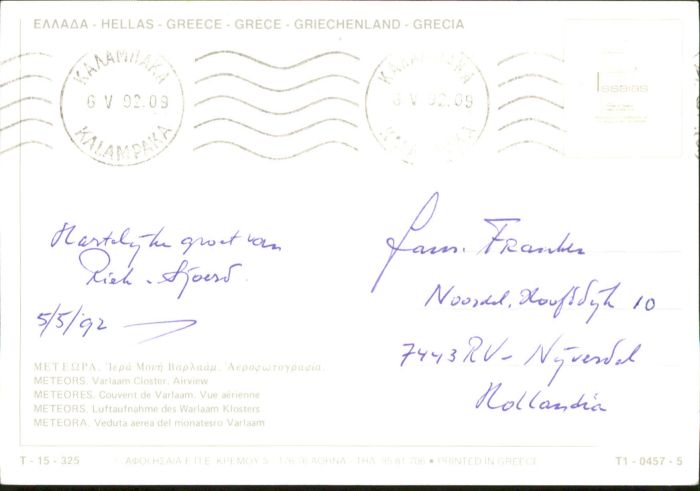 ΕΛΛΑΔΑ - HELLAS - GREECE - GRECE - GRIECHENLAND - GRECIA
ΚΑΛΑΜΠΑΚΑ
6 V 92.09
KALAMPAKA
ΚΑΛΑΜΠΑΚΑ
6 V 92.09
KALAMPAKA
Issaias
Hartelijke groet van
Riek - Sjoerd.
5/5/92
Fam. Franken
Noordel. Hoofddijk 10
7443 RV - Nijverdal
Hollandia
ΜΕΤΕΩΡΑ. Ἱερά Μονή Βαρλαάμ. Ἀεροφωτογραφία.
METEORS. Varlaam Closter. Airview
METEORES. Couvent de Varlaam. Vue aérienne
METEORS. Luftaufnahme des Warlaam Klosters
METEORA. Veduta aerea del monatesro Varlaam
T - 15 - 325
ΑΦΟΙ ΗΣΑΙΑ Ε.Π.Ε. ΚΡΕΜΟΥ 5 - 17676 ΑΘΗΝΑ - ΤΗΛ. 95 81 706 • PRINTED IN GREECE
T1 - 0457 - 5